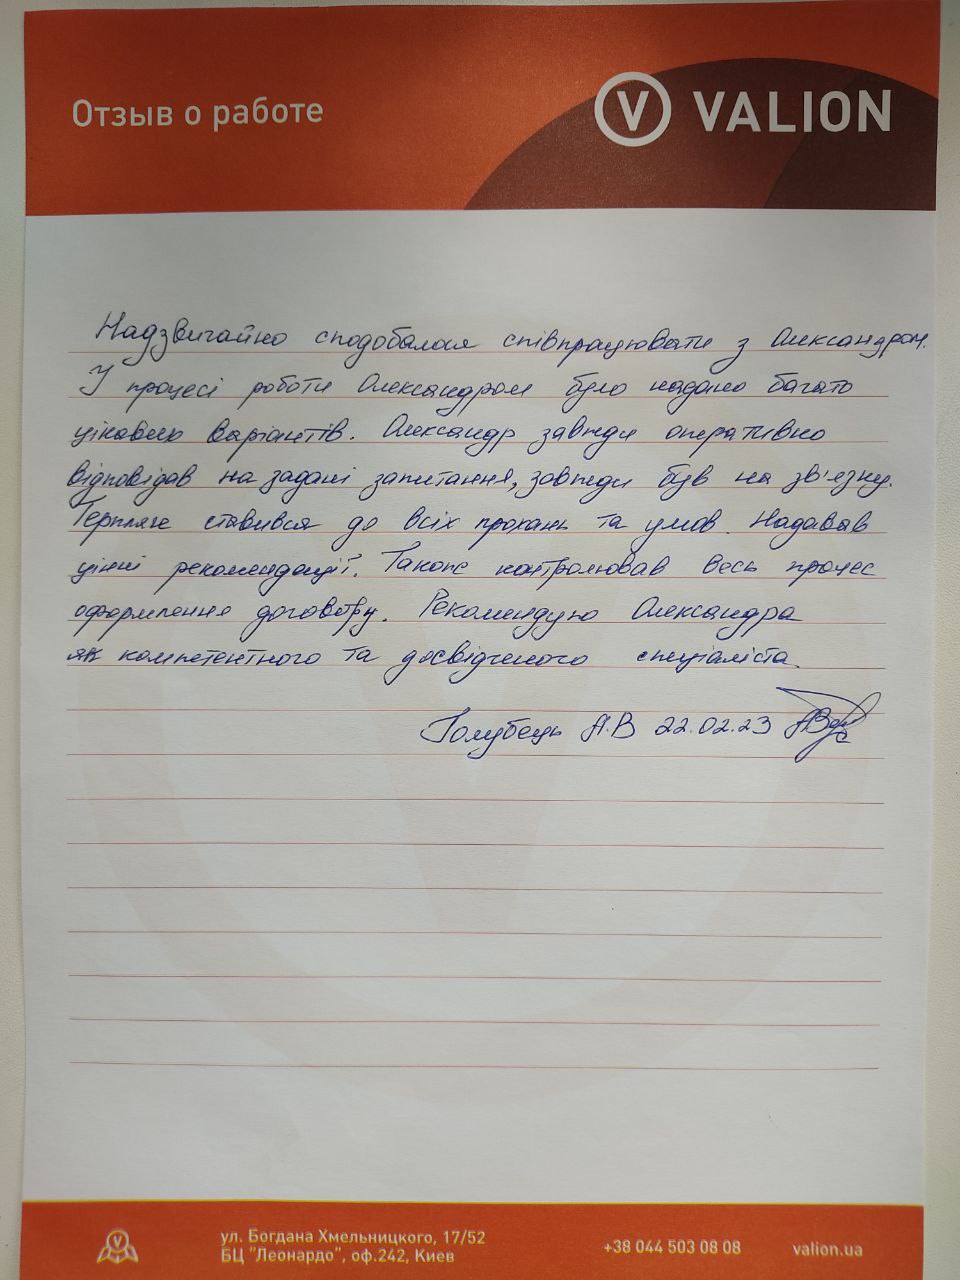 Отзыв о работе
VALION
Надзвичайно сподобалося співпрацювати з Олександром.
У процесі роботи Олександром було надано багато
цікавих варіантів. Олександр завжди оперативно
відповідав на задані запитання, завжди був на зв'язку.
Терпляче ставився до всіх прохань та умов. Надавав
цінні рекомендації. Також контролював весь процес
оформлення договору. Рекомендую Олександра
як компетентного та досвідченого спеціаліста.
Голубець А.В 22.02.23
ул. Богдана Хмельницкого, 17/52
БЦ "Леонардо", оф.242, Киев
+38 044 503 08 08
valion.ua